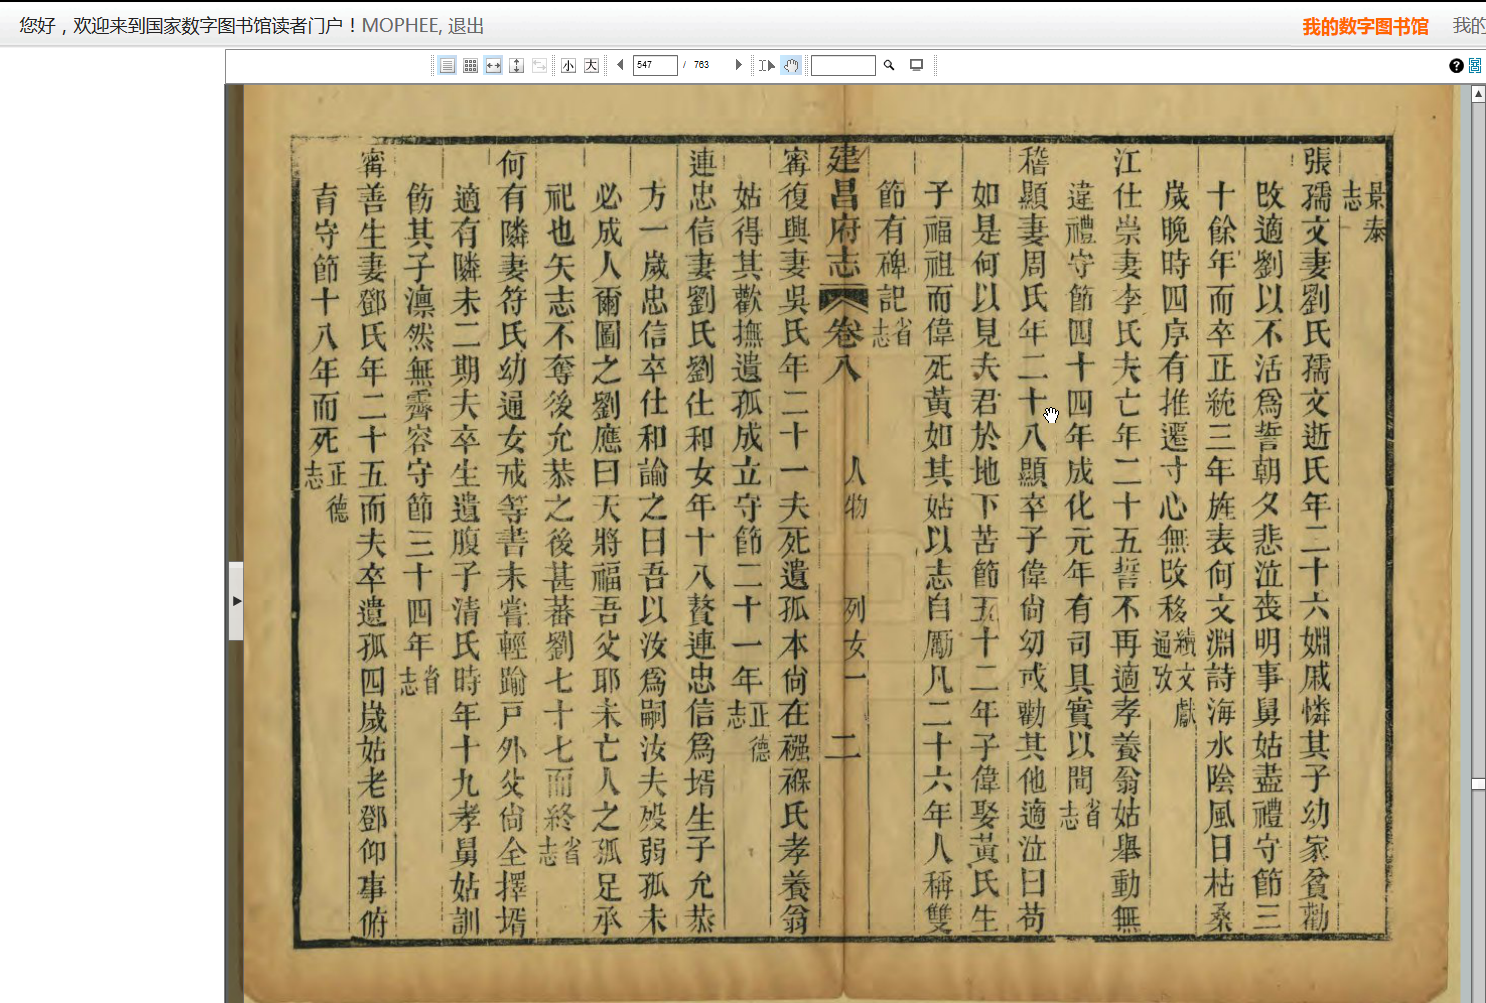 您好，欢迎来到国家数字图书馆读者门户！MOPHEE, 退出
我的数字图书馆
我的
小 大 547 / 763
景泰
志
張孺文妻劉氏孺文逝氏年二十六姻戚憐其子幼家貧勸
改適劉以不活爲誓朝夕悲泣喪明事舅姑盡禮守節三
十餘年而卒正統三年旌表何文淵詩海水陰風日枯桑
歲晚時四序有推遷寸心無改移續文獻
通攷
江仕崇妻李氏夫亡年二十五誓不再適孝養翁姑舉動無
違禮守節四十四年成化元年有司具實以聞省
志
稽顯妻周氏年二十八顯卒子偉尙幼或勸其他適泣曰苟
如是何以見夫君於地下苦節五十二年子偉娶黃氏生
子福祖而偉死黃如其姑以志自勵凡二十六年人稱雙
節有碑記省
志
建昌府志 卷八 人物 列女一 二
甯復興妻吳氏年二十一夫死遺孤本尙在襁褓氏孝養翁
姑得其歡撫遺孤成立守節二十一年正德
志
連忠信妻劉氏劉仕和女年十八贅連忠信爲壻生子允恭
方一歲忠信卒仕和諭之曰吾以汝爲嗣汝夫歿弱孤未
必成人爾圖之劉應曰天將福吾父耶未亡人之孤足承
祀也矢志不奪後允恭之後甚蕃劉七十七而終省
志
何有隣妻符氏幼通女戒等書未嘗輕踰戸外父尙全擇壻
適有隣未二期夫卒生遺腹子清氏時年十九孝舅姑訓
飭其子凛然無霽容守節三十四年省
志
甯善生妻鄧氏年二十五而夫卒遺孤四歲姑老鄧仰事俯
育守節十八年而死正德
志